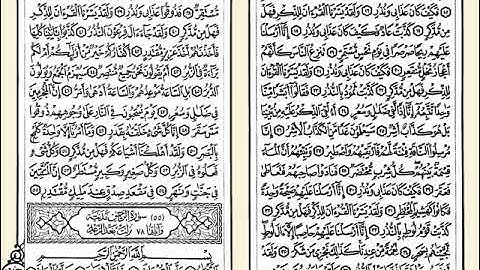 فَكَيْفَ كَانَ عَذَابِي وَنُذُرِ ١٦ وَلَقَدْ يَسَّرْنَا الْقُرْءَانَ لِلذِّكْرِ فَهَلْ
مِن مُّدَّكِرٍ ١٧ كَذَّبَتْ عَادٌ فَكَيْفَ كَانَ عَذَابِي وَنُذُرِ ١٨ إِنَّا أَرْسَلْنَا
عَلَيْهِمْ رِيحًا صَرْصَرًا فِي يَوْمِ نَحْسٍ مُّسْتَمِرٍّ ١٩ تَنزِعُ النَّاسَ كَأَنَّهُمْ
أَعْجَازُ نَخْلٍ مُّنقَعِرٍ ٢٠ فَكَيْفَ كَانَ عَذَابِي وَنُذُرِ ٢١ وَلَقَدْ يَسَّرْنَا الْقُرْءَانَ
لِلذِّكْرِ فَهَلْ مِن مُّدَّكِرٍ ٢٢ كَذَّبَتْ ثَمُودُ بِالنُّذُرِ ٢٣ فَقَالُوا أَبَشَرًا مِّنَّا
وَاحِدًا نَّتَّبِعُهُ إِنَّا إِذًا لَّفِي ضَلَالٍ وَسُعُرٍ ٢٤ أَءُلْقِيَ الذِّكْرُ عَلَيْهِ مِن بَيْنِنَا
بَلْ هُوَ كَذَّابٌ أَشِرٌ ٢٥ سَيَعْلَمُونَ غَدًا مَّنِ الْكَذَّابُ الْأَشِرُ ٢٦ إِنَّا
مُرْسِلُوا النَّاقَةِ فِتْنَةً لَّهُمْ فَارْتَقِبْهُمْ وَاصْطَبِرْ ٢٧ وَنَبِّئْهُمْ أَنَّ الْمَاءَ
قِسْمَةٌ بَيْنَهُمْ كُلُّ شِرْبٍ مُّحْتَضَرٌ ٢٨ فَنَادَوْا صَاحِبَهُمْ فَتَعَاطَى
فَعَقَرَ ٢٩ فَكَيْفَ كَانَ عَذَابِي وَنُذُرِ ٣٠ إِنَّا أَرْسَلْنَا عَلَيْهِمْ صَيْحَةً وَاحِدَةً
فَكَانُوا كَهَشِيمِ الْمُحْتَظِرِ ٣١ وَلَقَدْ يَسَّرْنَا الْقُرْءَانَ لِلذِّكْرِ فَهَلْ مِن مُّدَّكِرٍ
٣٢ كَذَّبَتْ قَوْمُ لُوطٍ بِالنُّذُرِ ٣٣ إِنَّا أَرْسَلْنَا عَلَيْهِمْ حَاصِبًا إِلَّا ءَالَ لُوطٍ
نَّجَّيْنَاهُم بِسَحَرٍ ٣٤ نِّعْمَةً مِّنْ عِندِنَا كَذَلِكَ نَجْزِي مَن شَكَرَ ٣٥
مُّسْتَقِرٌّ ٣٨ فَذُوقُوا عَذَابِي وَنُذُرِ ٣٩ وَلَقَدْ يَسَّرْنَا الْقُرْءَانَ لِلذِّكْرِ فَهَلْ
مِن مُّدَّكِرٍ ٤٠ وَلَقَدْ جَاءَ ءَالَ فِرْعَوْنَ النُّذُرُ ٤١ كَذَّبُوا بِـَٔايَاتِنَا كُلِّهَا
فَأَخَذْنَاهُمْ أَخْذَ عَزِيزٍ مُّقْتَدِرٍ ٤٢ أَكُفَّارُكُمْ خَيْرٌ مِّنْ أُولَئِكُمْ أَمْ لَكُم
بَرَاءَةٌ فِي الزُّبُرِ ٤٣ أَمْ يَقُولُونَ نَحْنُ جَمِيعٌ مُّنتَصِرٌ ٤٤ سَيُهْزَمُ الْجَمْعُ وَيُوَلُّونَ
الدُّبُرَ ٤٥ بَلِ السَّاعَةُ مَوْعِدُهُمْ وَالسَّاعَةُ أَدْهَى وَأَمَرُّ ٤٦ إِنَّ الْمُجْرِمِينَ
فِي ضَلَالٍ وَسُعُرٍ ٤٧ يَوْمَ يُسْحَبُونَ فِي النَّارِ عَلَى وُجُوهِهِمْ ذُوقُوا
مَسَّ سَقَرَ ٤٨ إِنَّا كُلَّ شَيْءٍ خَلَقْنَاهُ بِقَدَرٍ ٤٩ وَمَا أَمْرُنَا إِلَّا وَاحِدَةٌ كَلَمْحٍ
بِالْبَصَرِ ٥٠ وَلَقَدْ أَهْلَكْنَا أَشْيَاعَكُمْ فَهَلْ مِن مُّدَّكِرٍ ٥١ وَكُلُّ شَيْءٍ
فَعَلُوهُ فِي الزُّبُرِ ٥٢ وَكُلُّ صَغِيرٍ وَكَبِيرٍ مُّسْتَطَرٌ ٥٣ إِنَّ الْمُتَّقِينَ
فِي جَنَّاتٍ وَنَهَرٍ ٥٤ فِي مَقْعَدِ صِدْقٍ عِندَ مَلِيكٍ مُّقْتَدِرٍ ٥٥
(٥٥) سورة الرحمن مدنية
وآياتها ٧٨ نزلت بعد الرعد
بِسْمِ اللَّهِ الرَّحْمَنِ الرَّحِيمِ